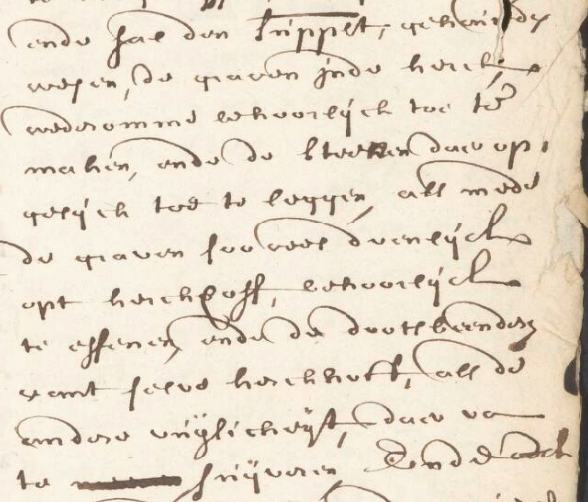 ende sal den suppoost, gehouden
wesen, de graven inde kerck,
wederomme behoorlijck toe te
maken, ende de steenen daer op,
gelijck toe te leggen, als mede
de graven soo veel doenlijck
opt kerckhoff, behoorlijck
te effenen, ende de dootsbeenders
vant selve kerckhoff, als de
andere vuijlicheijt, daer va
te suijveren Ende